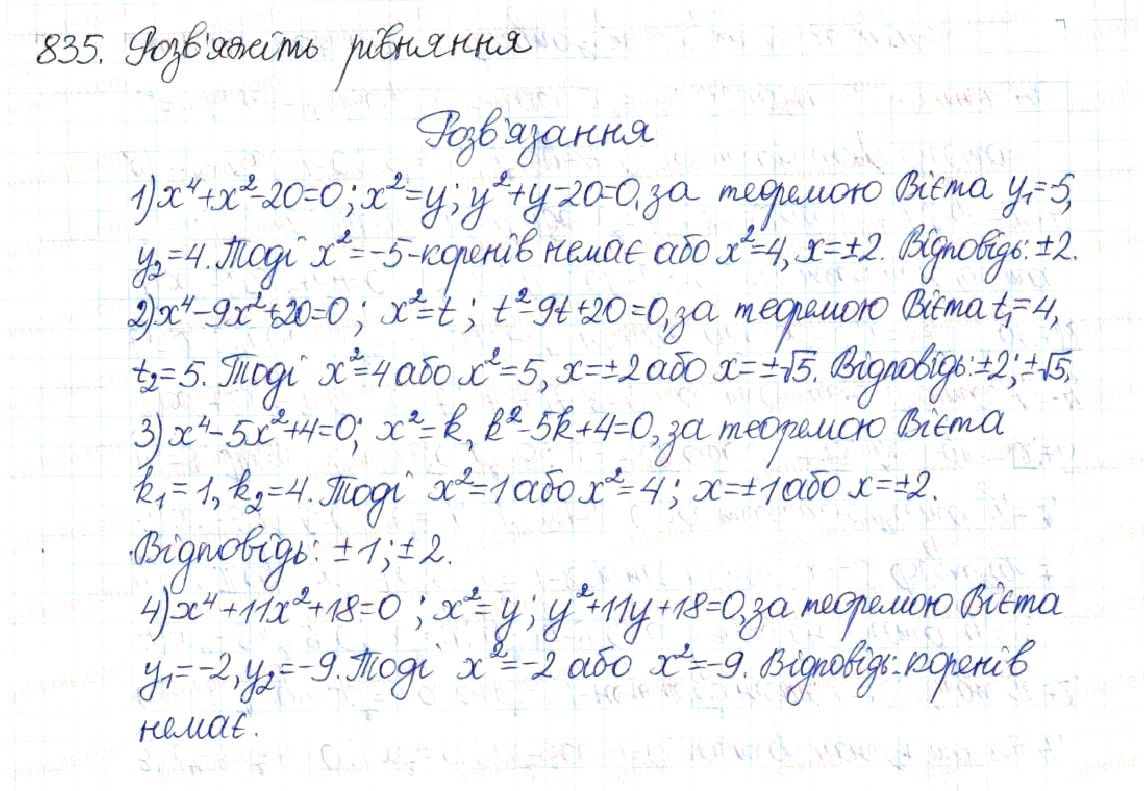 835. Розв'яжіть рівняння
Розв'язання
1) x⁴+x²-20=0; x²=y; y²+y-20=0, за теоремою Вієта y₁=5,
y₂=4. Тоді x²=-5 - коренів немає або x²=4, x=±2. Відповідь: ±2.
2) x⁴-9x²+20=0; x²=t; t²-9t+20=0, за теоремою Вієта t₁=4,
t₂=5. Тоді x²=4 або x²=5, x=±2 або x=±√5. Відповідь: ±2; ±√5.
3) x⁴-5x²+4=0; x²=k, k²-5k+4=0, за теоремою Вієта
k₁=1, k₂=4. Тоді x²=1 або x²=4; x=±1 або x=±2.
Відповідь: ±1; ±2.
4) x⁴+11x²+18=0; x²=y; y²+11y+18=0, за теоремою Вієта
y₁=-2, y₂=-9. Тоді x²=-2 або x²=-9. Відповідь: коренів
немає.